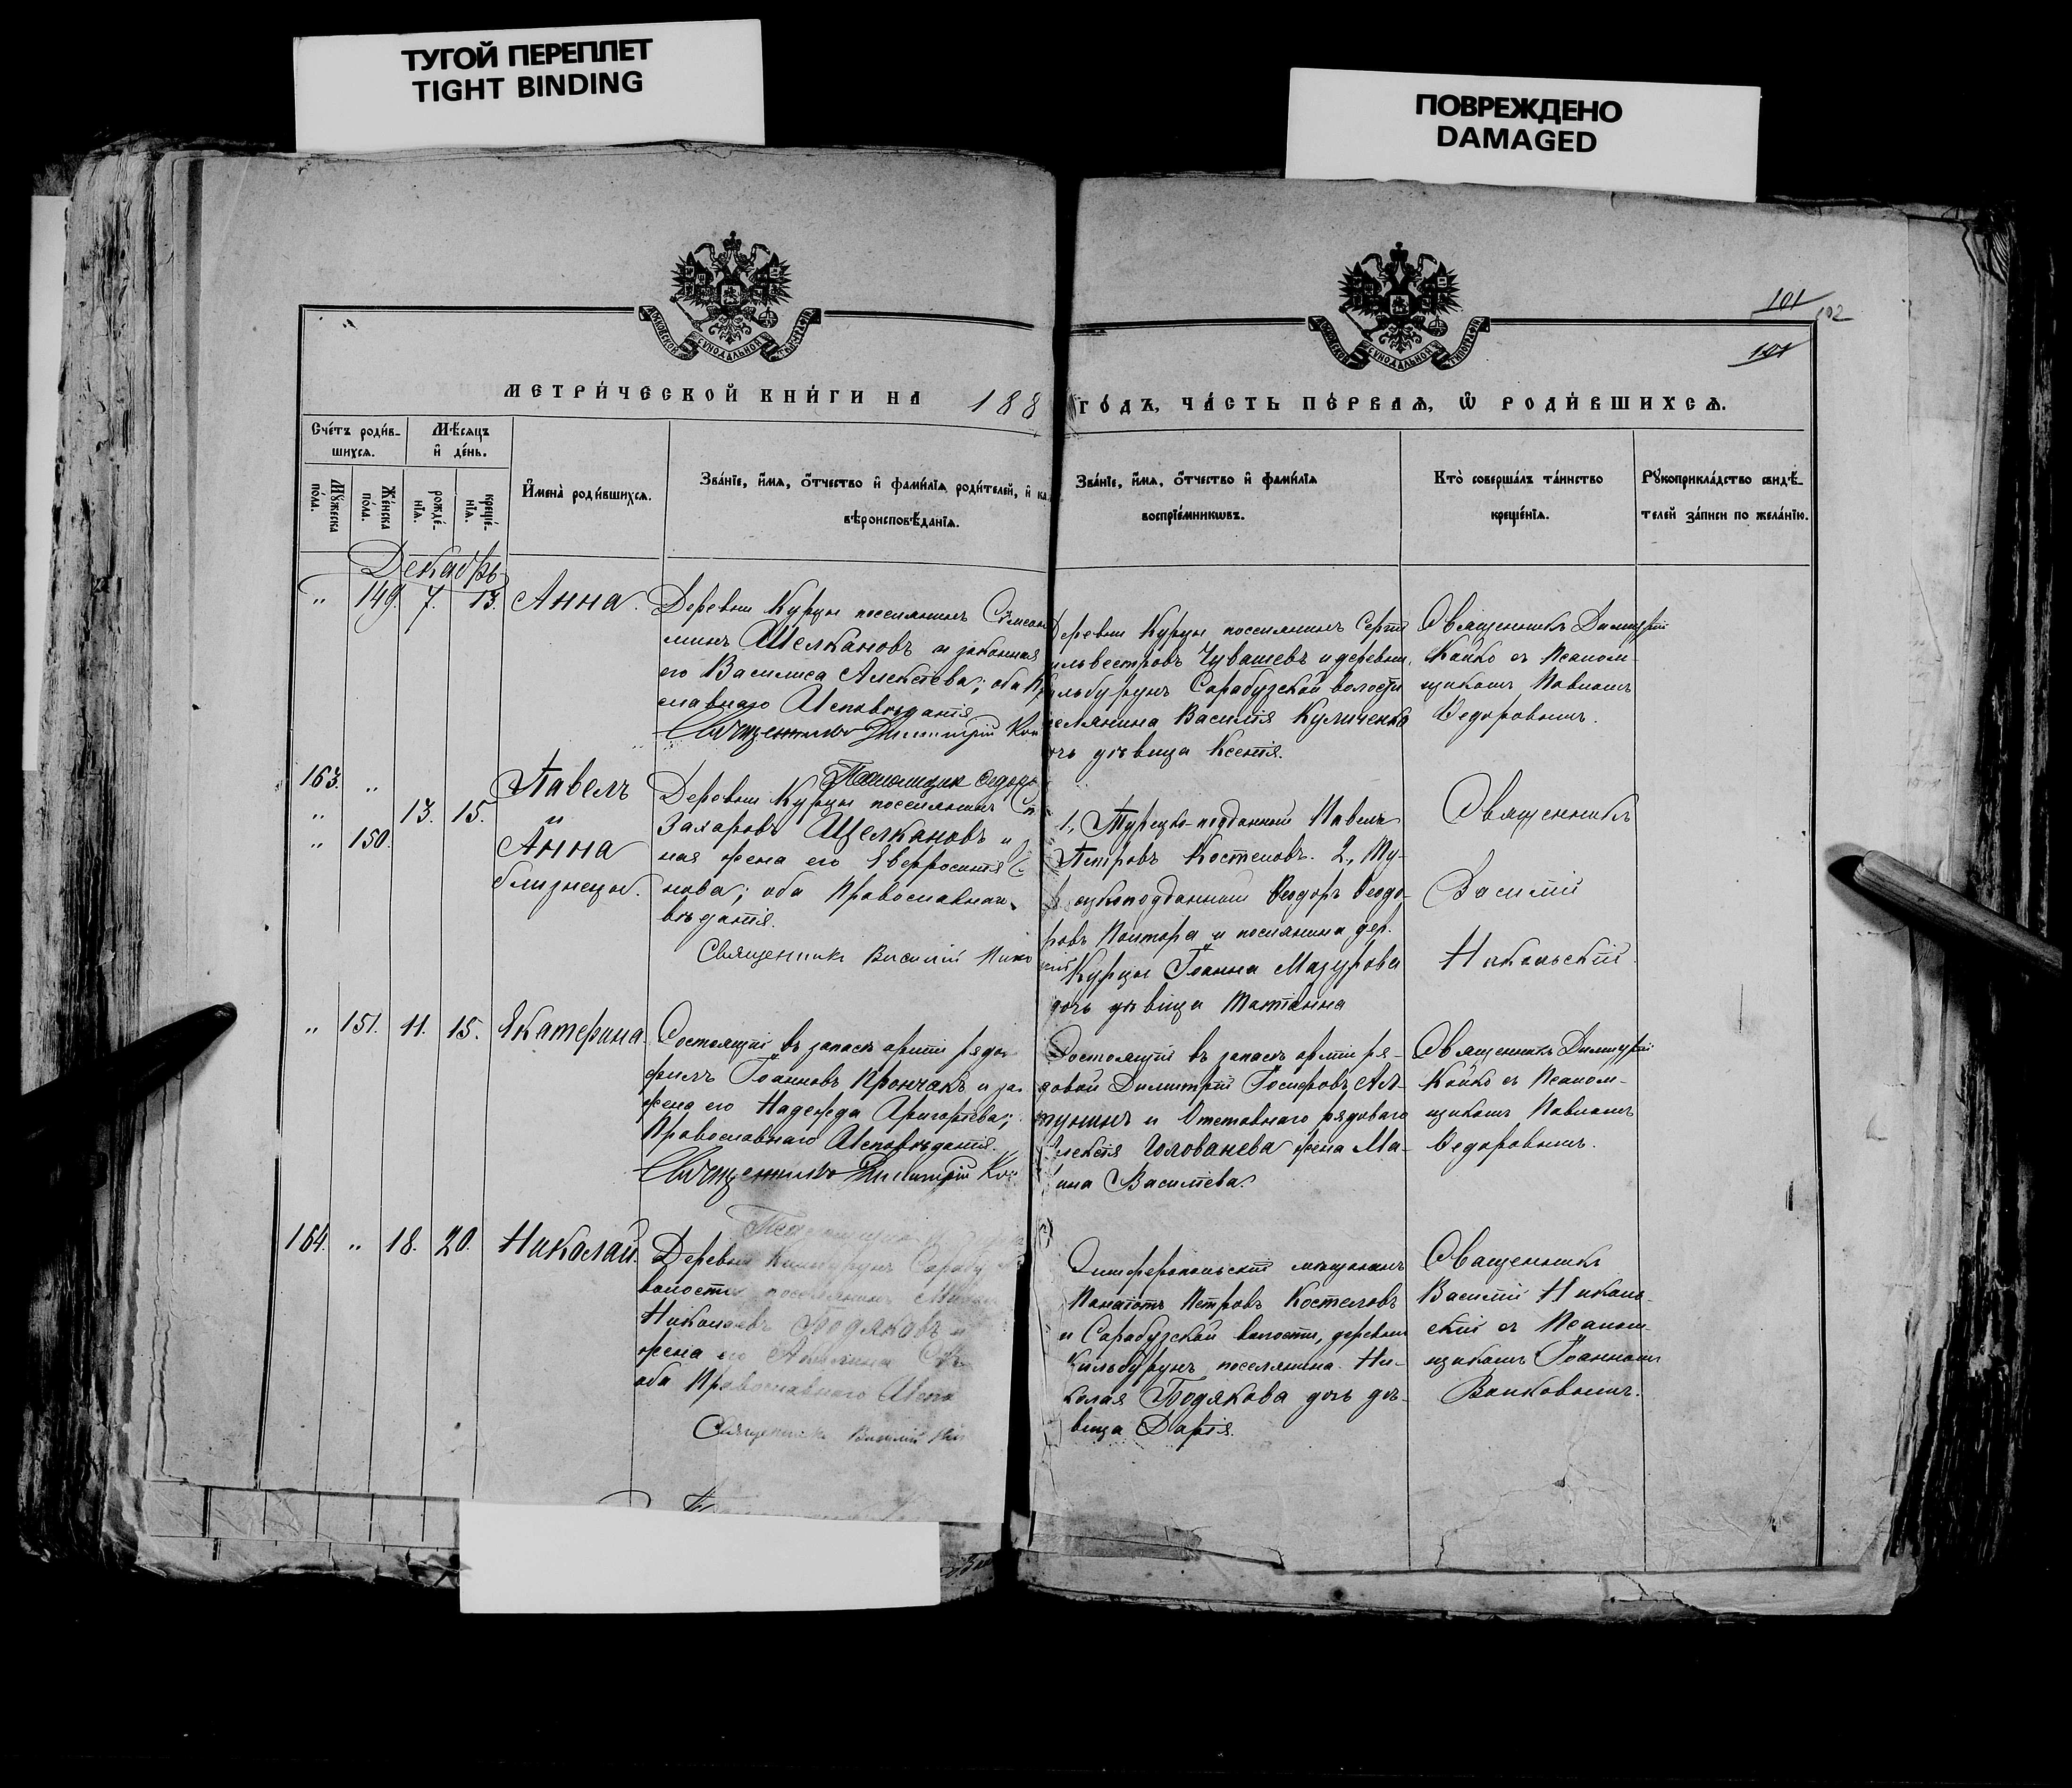 ТУГОЙ ПЕРЕПЛЕТ
TIGHT BINDING
ПОВРЕЖДЕНО
DAMAGED
МОСКОВСКОЙ СѴНОДАЛЬНОЙ ТИПОГРАФІИ
МОСКОВСКОЙ СѴНОДАЛЬНОЙ ТИПОГРАФІИ
101
102
101
МЕТРИ́ЧЕСКОЙ КНИ́ГИ НА 188
ГО́ДЪ, ЧА́СТЬ ПЕ́РВАѦ, Ѡ҆ РОДИ́ВШИХСѦ.
Сче́тъ роди́в-
шихсѧ.
Мѣ́сѧцъ
и҆ де́нь.
Мꙋ́жеска
по́ла.
Же́нска
по́ла.
рожде́-
нїѧ.
креще́-
нїѧ.
И҆мена̀ роди́вшихсѧ.
Зва́нїе, и҆́мѧ, ѻ҆́тчество и҆ фами́лїѧ роди́телей, и҆ ка
вѣроисповѣ́данїѧ.
Зва́нїе, и҆́мѧ, ѻ҆́тчество и҆ фами́лїѧ
воспрїе́мникѡвъ.
Кто̀ соверша́лъ та́инство
креще́нїѧ.
Рꙋкоприкла́дство свидѣ́-
телей за́писи по жела́нїю.
Декабрь
" 149. 7. 13. Анна.
Деревни Курцы поселянинъ
минъ Щелкановъ и законная
его Василиса Алексѣева; оба П
славнаго Исповѣданія
Священникъ Димитрій Кой
Псаломщик Федоро
Деревни Курцы поселянинъ Сергій
ильвестровъ Чувашевъ и деревни
ильбурунъ Сарабузской волости
селянина Василія Куличенко
очь дѣвица Ксенія.
Священникъ Димитрій
Койко съ Псалом-
щикомъ Павломъ
Ѳедоровымъ.
163. "
" 13. 15.
" 150.
Павелъ
и
Анна
близнецы.
Деревни Курцы поселянин
Захаровъ Щелкановъ и
ная жена его Евфросинія
нова; оба Православнаго
вѣданія.
Священникъ Василій Нико
1, Турецко-подданный Павелъ
Петровъ Костеловъ. 2, Ту-
ецкоподданный Ѳеодоръ Ѳеодо-
ровъ и поселянина дер.
Курцы Іоанна Мазурова
дочь дѣвица Татіанна
Священникъ
Василій
Никольскій
" 151. 11. 15. Екатерина.
Состоящій въ запасѣ арміи рядов
Іоанновъ Прончакъ и за
жена его Надежда Григорьева;
Православнаго Исповѣданія.
Священникъ Димитрій Кой
Состоящій въ запасѣ арміи ря-
довой Димитрій Іосифовъ Ал-
тунинъ и Отставнаго рядоваго
лексія Голованева жена Ма-
рина Васильева.
Священникъ Димитрій
Койко съ Псалом-
щикомъ Павломъ
Ѳедоровымъ.
164. " 18. 20. Николай.
Деревни Кильбурунъ Сарабу
волости поселянинъ
Николаевъ Бодяковъ и
жена его Акилина
оба Православнаго Испо
Священникъ Василій Ник
Симферопольскій мѣщанинъ
Панагіотъ Петровъ Костеловъ
и Сарабузской волости, деревни
Кильбурунъ поселянина Ни-
колая Бодякова дочь дѣ-
вица Дарія.
Священникъ
Василій Николь-
скій съ Псалом-
щикомъ Іоанномъ
Волковымъ.